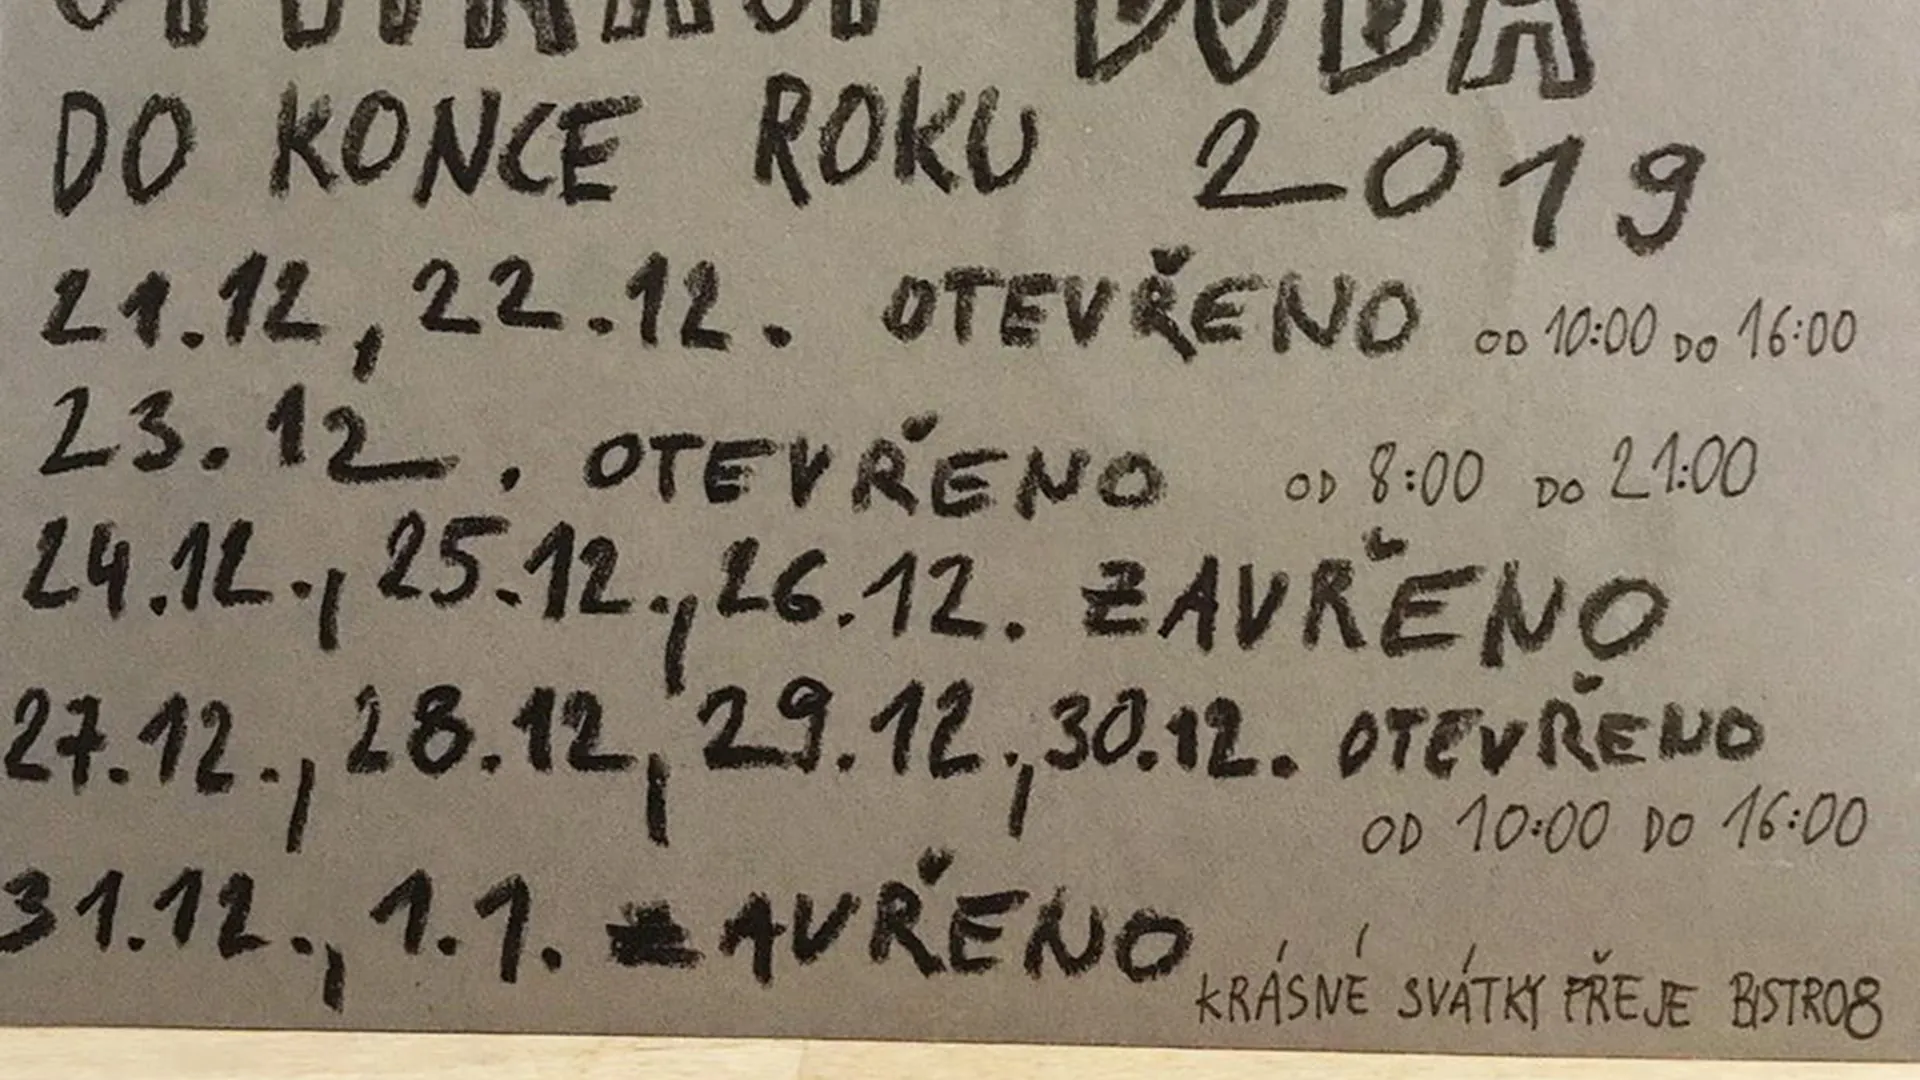 DOBA
DO KONCE ROKU 2019
21.12, 22.12. OTEVŘENO OD 10:00 DO 16:00
23.12. OTEVŘENO OD 8:00 DO 21:00
24.12., 25.12., 26.12. ZAVŘENO
27.12., 28.12, 29.12., 30.12. OTEVŘENO
OD 10:00 DO 16:00
31.12., 1.1. ZAVŘENO
KRÁSNÉ SVÁTKY PŘEJE BISTRO8